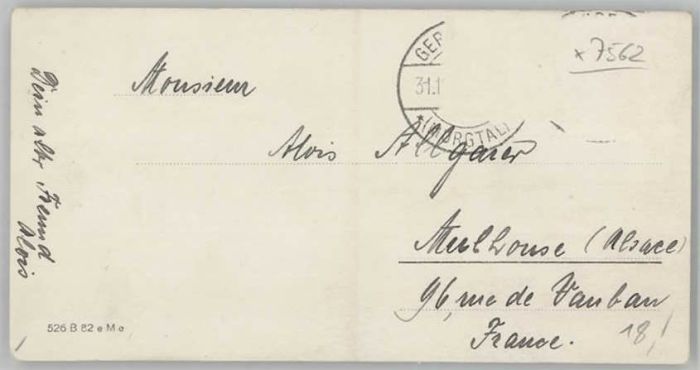 GER
31.1
(MURGTAL)
*7562
Monsieur
Alois Allgaier
Mulhouse (Alsace)
96, rue de Vauban
France.
18,!
Dein alter Freund
Alois
526 B 82 e M e